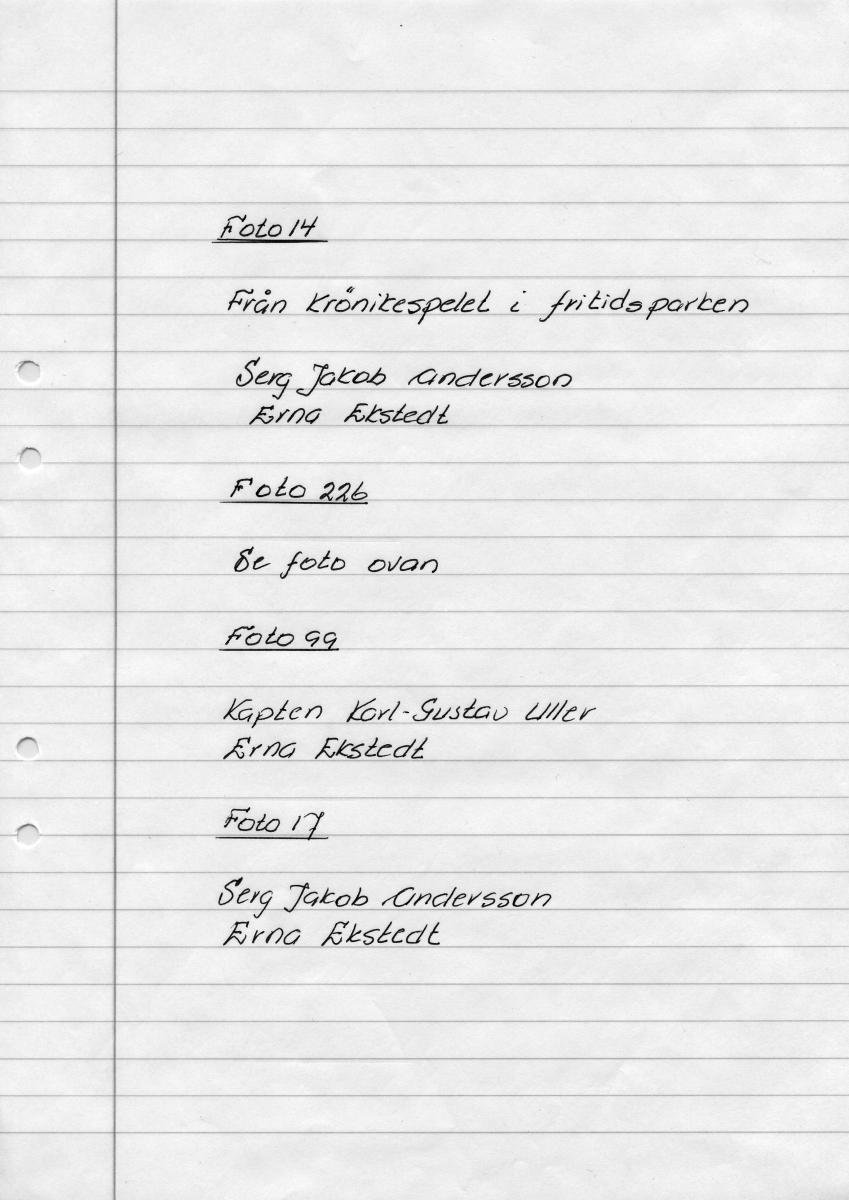 Foto 14
Från Krönikespelet i fritidsparken
Serg Jakob Andersson
Erna Ekstedt
Foto 226
Se foto ovan
Foto 99
Kapten Karl-Gustav Uller
Erna Ekstedt
Foto 17
Serg Jakob Andersson
Erna Ekstedt